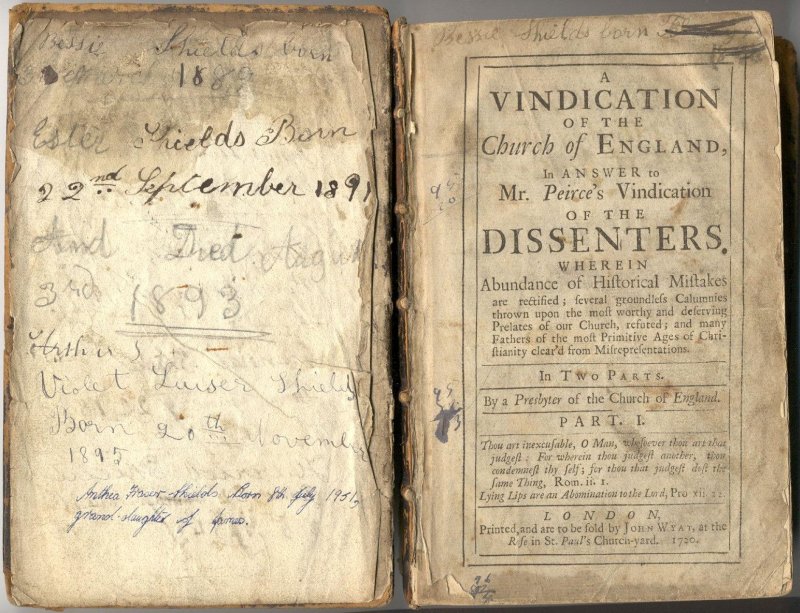 Bessie Shields born
March 1889
Ester Shields Born
22nd September 1891
And Died August
3rd 1893
Arthur S
Violet Luiser Shields
Born 20th November
1895
Anthea Fraser Shields Born 8th July 1951,
grand-daughter of James.
Bessie Shields born
A
VINDICATION
OF THE
Church of ENGLAND,
In ANSWER to
Mr. Peirce's Vindication
OF THE
DISSENTERS.
WHEREIN
Abundance of Hiſtorical Miſtakes
are rectified; ſeveral groundleſs Calumnies
thrown upon the moſt worthy and deſerving
Prelates of our Church, refuted; and many
Fathers of the moſt Primitive Ages of Chri-
ſtianity clear'd from Miſrepreſentations.
In TWO PARTS.
By a Presbyter of the Church of England.
PART. I.
Thou art inexcuſable, O Man, whoſoever thou art that
judgeſt: For wherein thou judgeſt another, thou
condemneſt thy ſelf; for thou that judgeſt doſt the
ſame Thing, Rom. ii. 1.
Lying Lips are an Abomination to the Lord, Pro xii. 22.
LONDON,
Printed, and are to be ſold by JOHN WYAT, at the
Roſe in St. Paul's Church-yard. 1720.